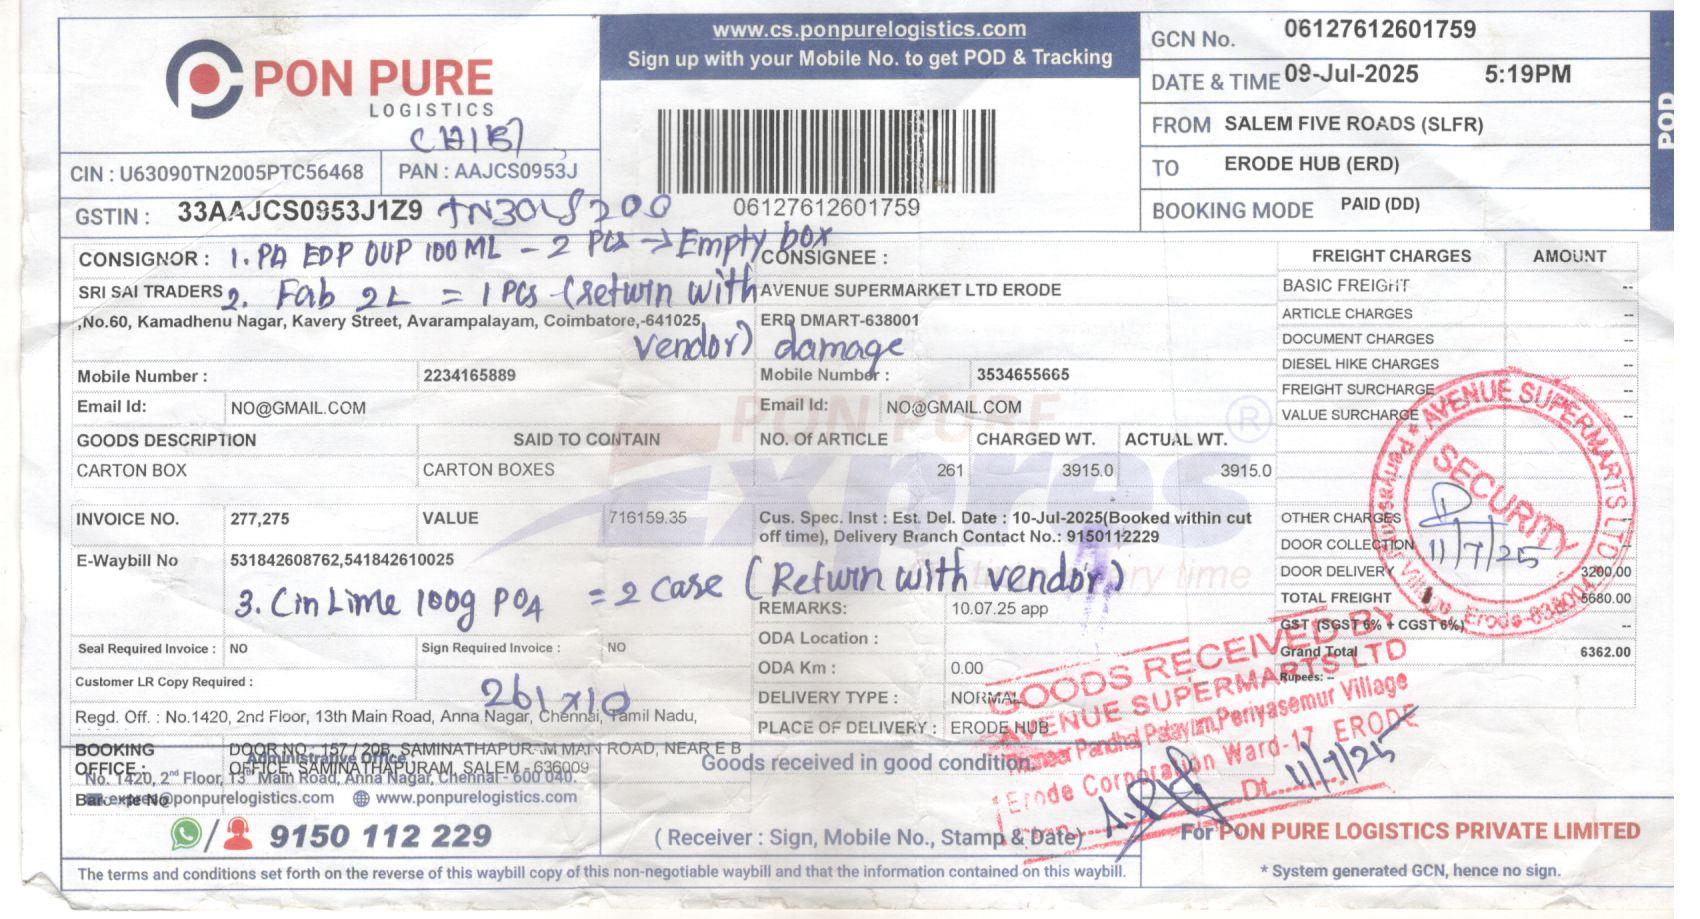 PON PURE
LOGISTICS
www.cs.ponpurelogistics.com
Sign up with your Mobile No. to get POD & Tracking
GCN No. 06127612601759
DATE & TIME 09-Jul-2025 5:19PM
FROM SALEM FIVE ROADS (SLFR)
TO ERODE HUB (ERD)
BOOKING MODE PAID (DD)
POD
CIN : U63090TN2005PTC56468 PAN : AAJCS0953J
GSTIN : 33AAJCS0953J1Z9
06127612601759
1. PA EDP OUP 100 ML - 2 Pcs → Empty box
2. Fab 2L = 1 Pcs (return with
vendor) damage
CONSIGNOR :
SRI SAI TRADERS
,No.60, Kamadhenu Nagar, Kavery Street, Avarampalayam, Coimbatore,-641025
Mobile Number : 2234165889
Email Id: NO@GMAIL.COM
CONSIGNEE :
AVENUE SUPERMARKET LTD ERODE
ERD DMART-638001
Mobile Number : 3534655665
Email Id: NO@GMAIL.COM
FREIGHT CHARGES AMOUNT
BASIC FREIGHT --
ARTICLE CHARGES --
DOCUMENT CHARGES --
DIESEL HIKE CHARGES --
FREIGHT SURCHARGE --
VALUE SURCHARGE
GOODS DESCRIPTION SAID TO CONTAIN NO. OF ARTICLE CHARGED WT. ACTUAL WT.
CARTON BOX CARTON BOXES 261 3915.0 3915.0
PON PURE
Expres ®
INVOICE NO. 277,275 VALUE 716159.35
Cus. Spec. Inst : Est. Del. Date : 10-Jul-2025(Booked within cut
off time), Delivery Branch Contact No.: 9150112229
E-Waybill No 531842608762,541842610025
3. Cin Lime 100g PO4 = 2 case (Return with vendor)
OTHER CHARGES
DOOR COLLECTION
DOOR DELIVERY 3200.00
TOTAL FREIGHT 5680.00
GST (SGST 6% + CGST 6%) --
Grand Total 6362.00
Rupees: --
AVENUE SUPERMARTS LTD
SECURITY
11/7/25
REMARKS: 10.07.25 app
ODA Location :
ODA Km : 0.00
DELIVERY TYPE : NORMAL
PLACE OF DELIVERY : ERODE HUB
Seal Required Invoice : NO Sign Required Invoice : NO
Customer LR Copy Required :
261x10
Regd. Off. : No.1420, 2nd Floor, 13th Main Road, Anna Nagar, Chennai, Tamil Nadu,
BOOKING OFFICE : DOOR NO. 157 / 20B, SAMINATHAPURAM MAIN ROAD, NEAR E B
OFFICE, SAMINATHAPURAM, SALEM - 636009
Administrative Office
No. 1420, 2nd Floor, 13th Main Road, Anna Nagar, Chennai - 600 040.
@ponpurelogistics.com www.ponpurelogistics.com
/ 9150 112 229
Goods received in good condition.
( Receiver : Sign, Mobile No., Stamp & Date)
GOODS RECEIVED BY
AVENUE SUPERMARTS LTD
Periyasemur Village
Erode Corporation Ward-17 ERODE
Dt. 11/7/25
For PON PURE LOGISTICS PRIVATE LIMITED
The terms and conditions set forth on the reverse of this waybill copy of this non-negotiable waybill and that the information contained on this waybill.
* System generated GCN, hence no sign.